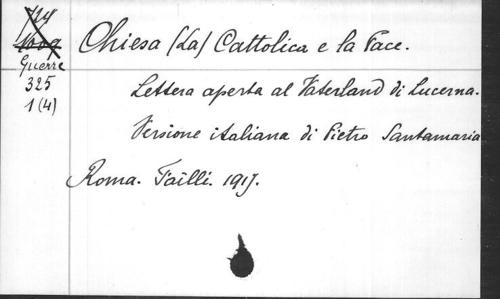 Guerre
325
1(4)
Chiesa (La) Cattolica e la Pace.
Lettera aperta al Vaterland di Lucerna.
Versione italiana di Pietro Santamaria
Roma. Failli. 1917.